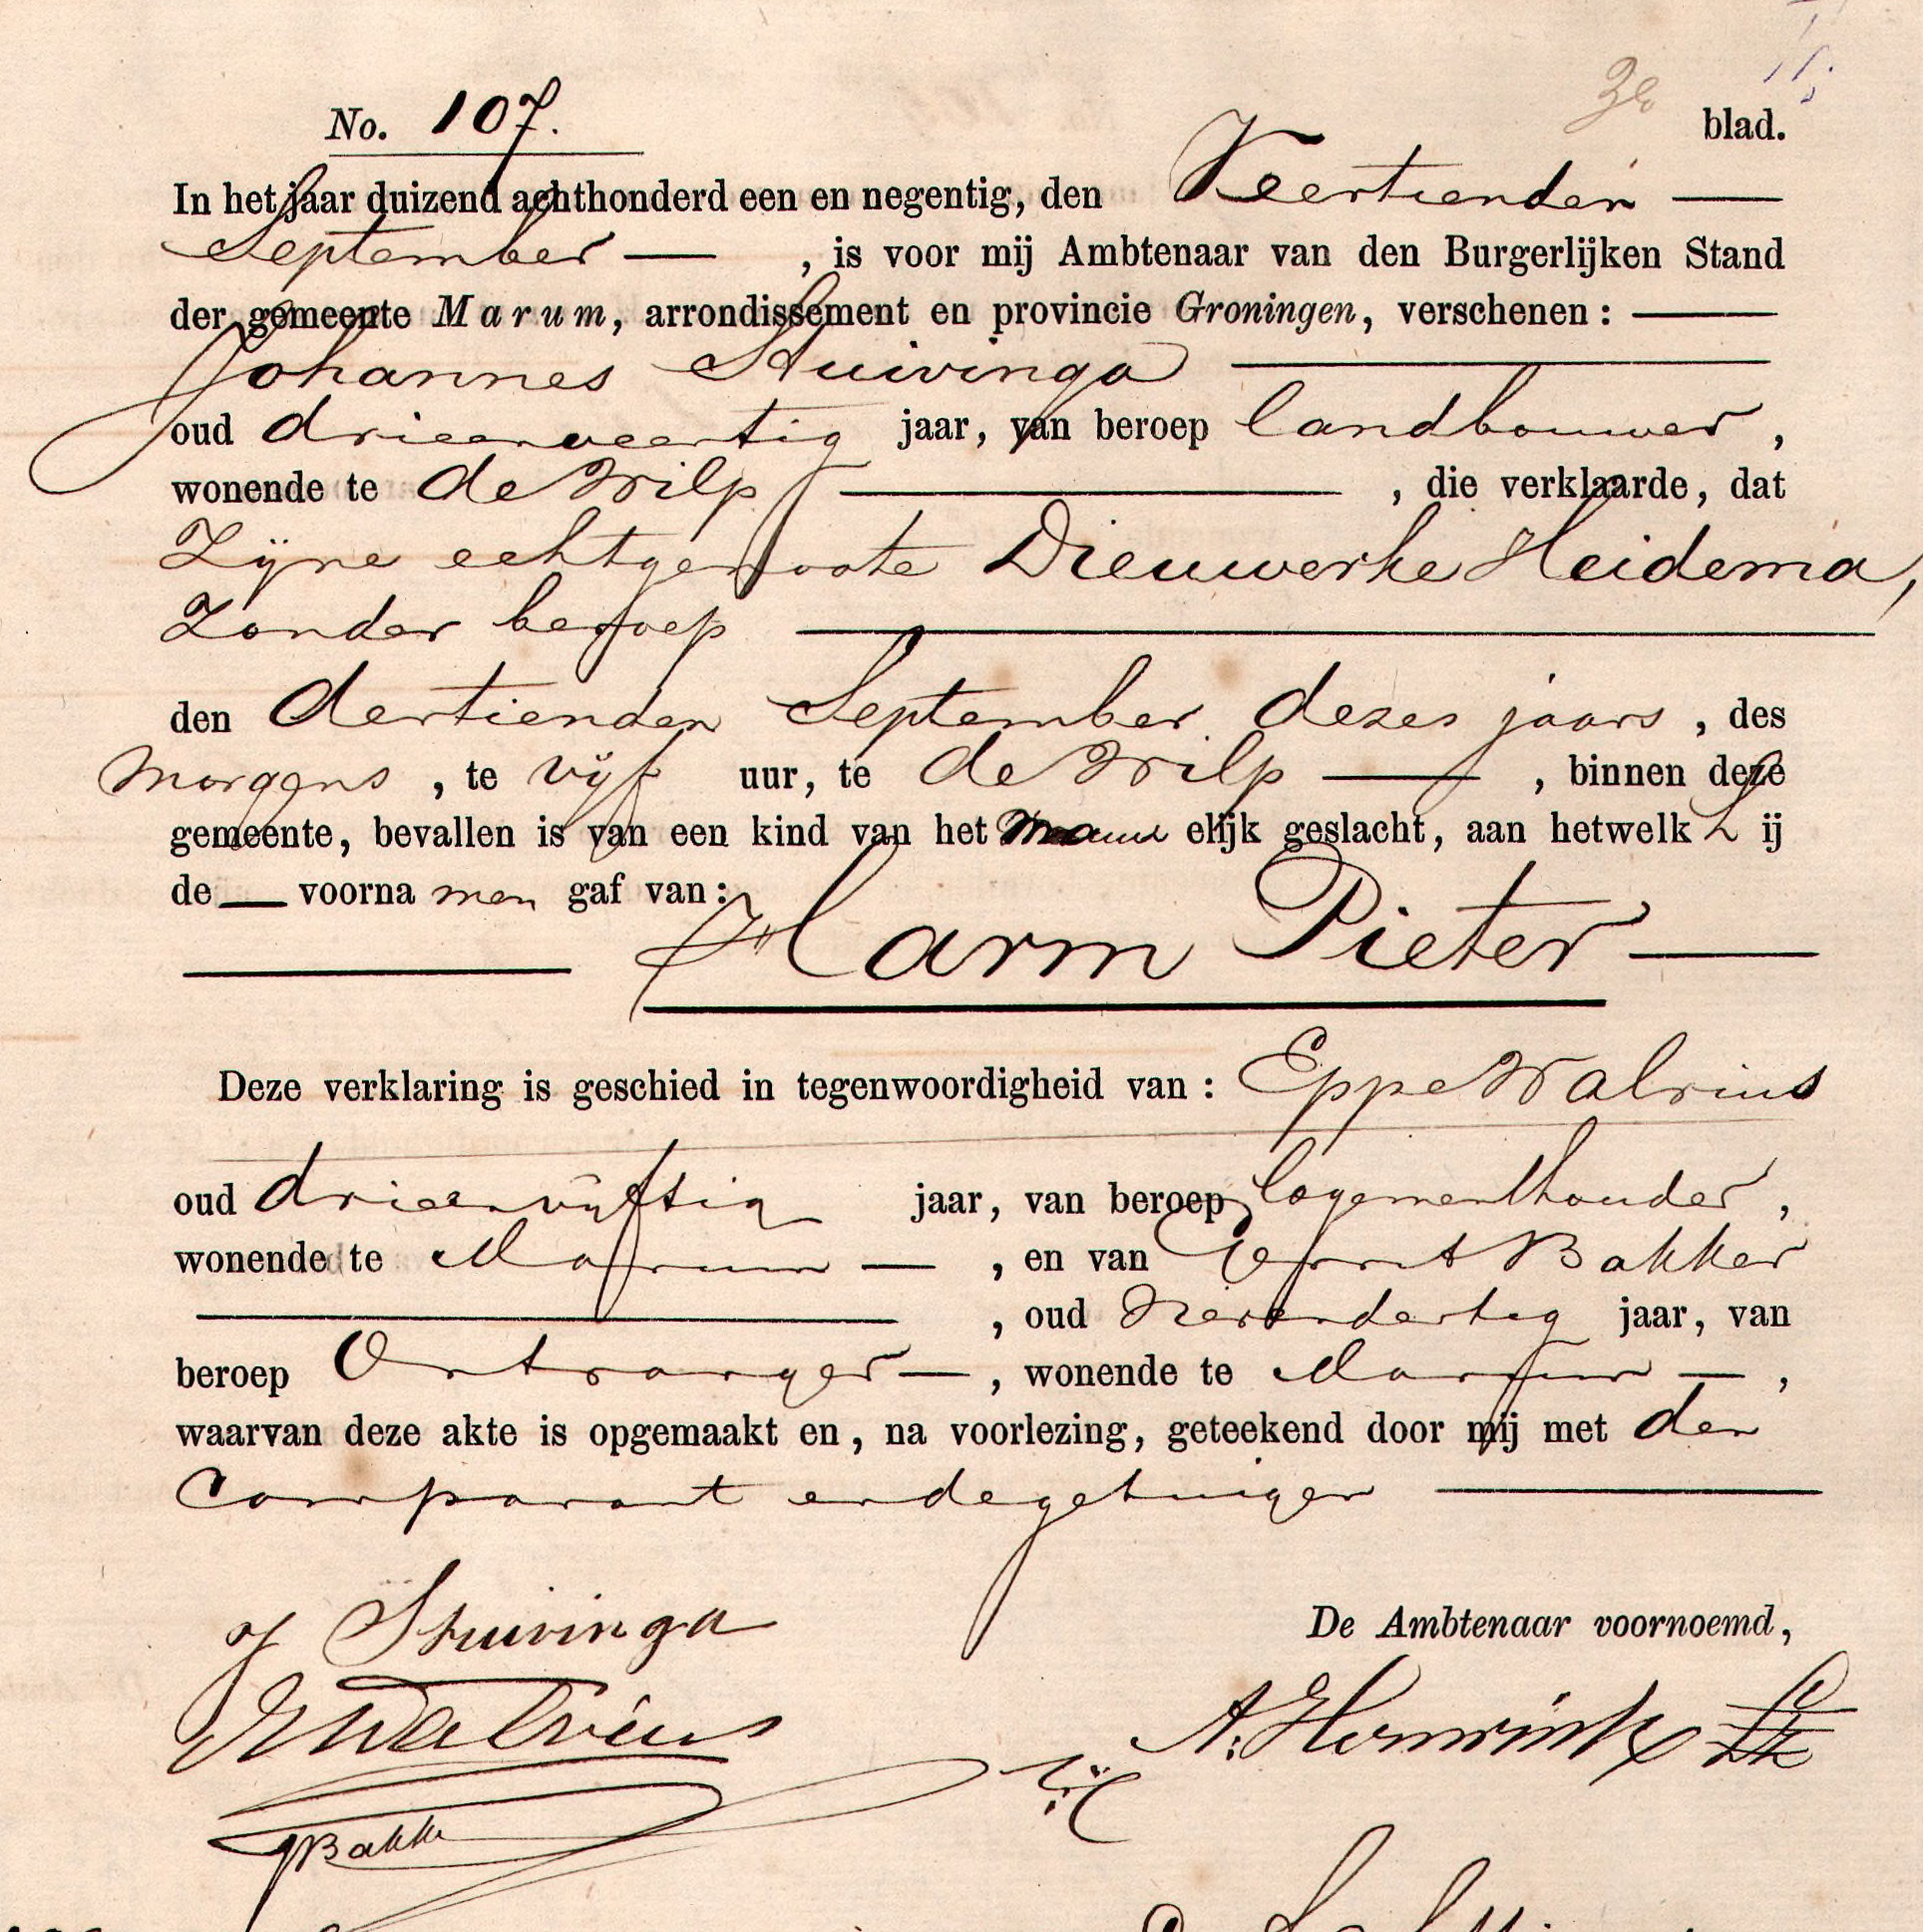 No. 107.
blad.
In het jaar duizend achthonderd een en negentig, den Veertienden
September, is voor mij Ambtenaar van den Burgerlijken Stand
der gemeente Marum, arrondissement en provincie Groningen, verschenen:
Johannes Stuivinga
oud drieenveertig jaar, van beroep landbouwer,
wonende te de Wilp, die verklaarde, dat
Zijne echtgenoote Dieuwerke Heidema,
Zonder beroep
den dertienden September dezes jaars, des
morgens, te vijf uur, te de Wilp, binnen deze
gemeente, bevallen is van een kind van het mannelijk geslacht, aan hetwelk hij
de voornamen gaf van:
Harm Pieter
Deze verklaring is geschied in tegenwoordigheid van: Eppe Walrius
oud drieenvijftig jaar, van beroep logementhouder,
wonende te Marum, en van Gerrit Bakker
, oud jaar, van
beroep Ontvanger, wonende te Marum,
waarvan deze akte is opgemaakt en, na voorlezing, geteekend door mij met den
Comparant en de getuigen
J Stuivinga
De Ambtenaar voornoemd,
EWalrius
GBakker